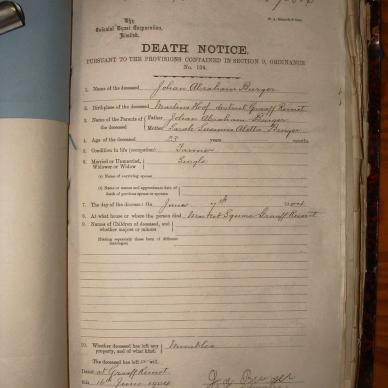 The
Colonial Trust Corporation,
Limited.
DEATH NOTICE,
PURSUANT TO THE PROVISIONS CONTAINED IN SECTION 9, ORDINANCE
No. 104.
1. Name of the deceased Johan Abraham Burger
2. Birthplace of the deceased district Graaff Reinet
3. Name of the Parents of the deceased
Father Johan Abraham Burger
Mother Sarah Susanna Aletta Burger
4. Age of the deceased 23 years months
5. Condition in life (occupation) Farmer
6. Married or Unmarried, Widower or Widow Single
(a) Name of surviving spouse
(b) Name or names and approximate date of death of previous spouse or spouses
7. The day of the decease: On June 7th
8. At what house or where the person died Market Square Graaff Reinet
9. Names of Children of deceased, and whether majors or minors
Stating separately those born of different marriages
10. Whether deceased has left any property, and of what kind: Movables
The deceased has left will.
Dated at Graaff Reinet
this 16th June